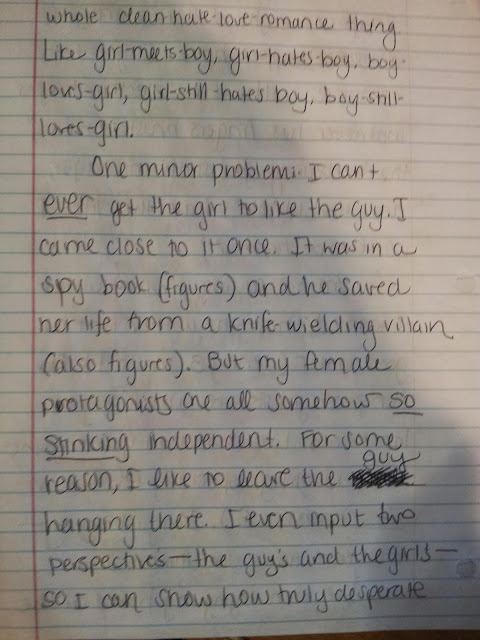 whole clean hate-love romance thing
Like girl-meets-boy, girl-hates-boy, boy-
loves-girl, girl-still-hates boy, boy-still-
loves-girl.
One minor problem: I can't
ever get the girl to like the guy. I
came close to it once. It was in a
spy book (figures) and he saved
her life from a knife-wielding villain
(also figures). But my female
protagonists are all somehow so
stinking independent. For some
reason, I like to leave the guy
hanging there. I even input two
perspectives—the guy's and the girl's—
so I can show how truly desperate